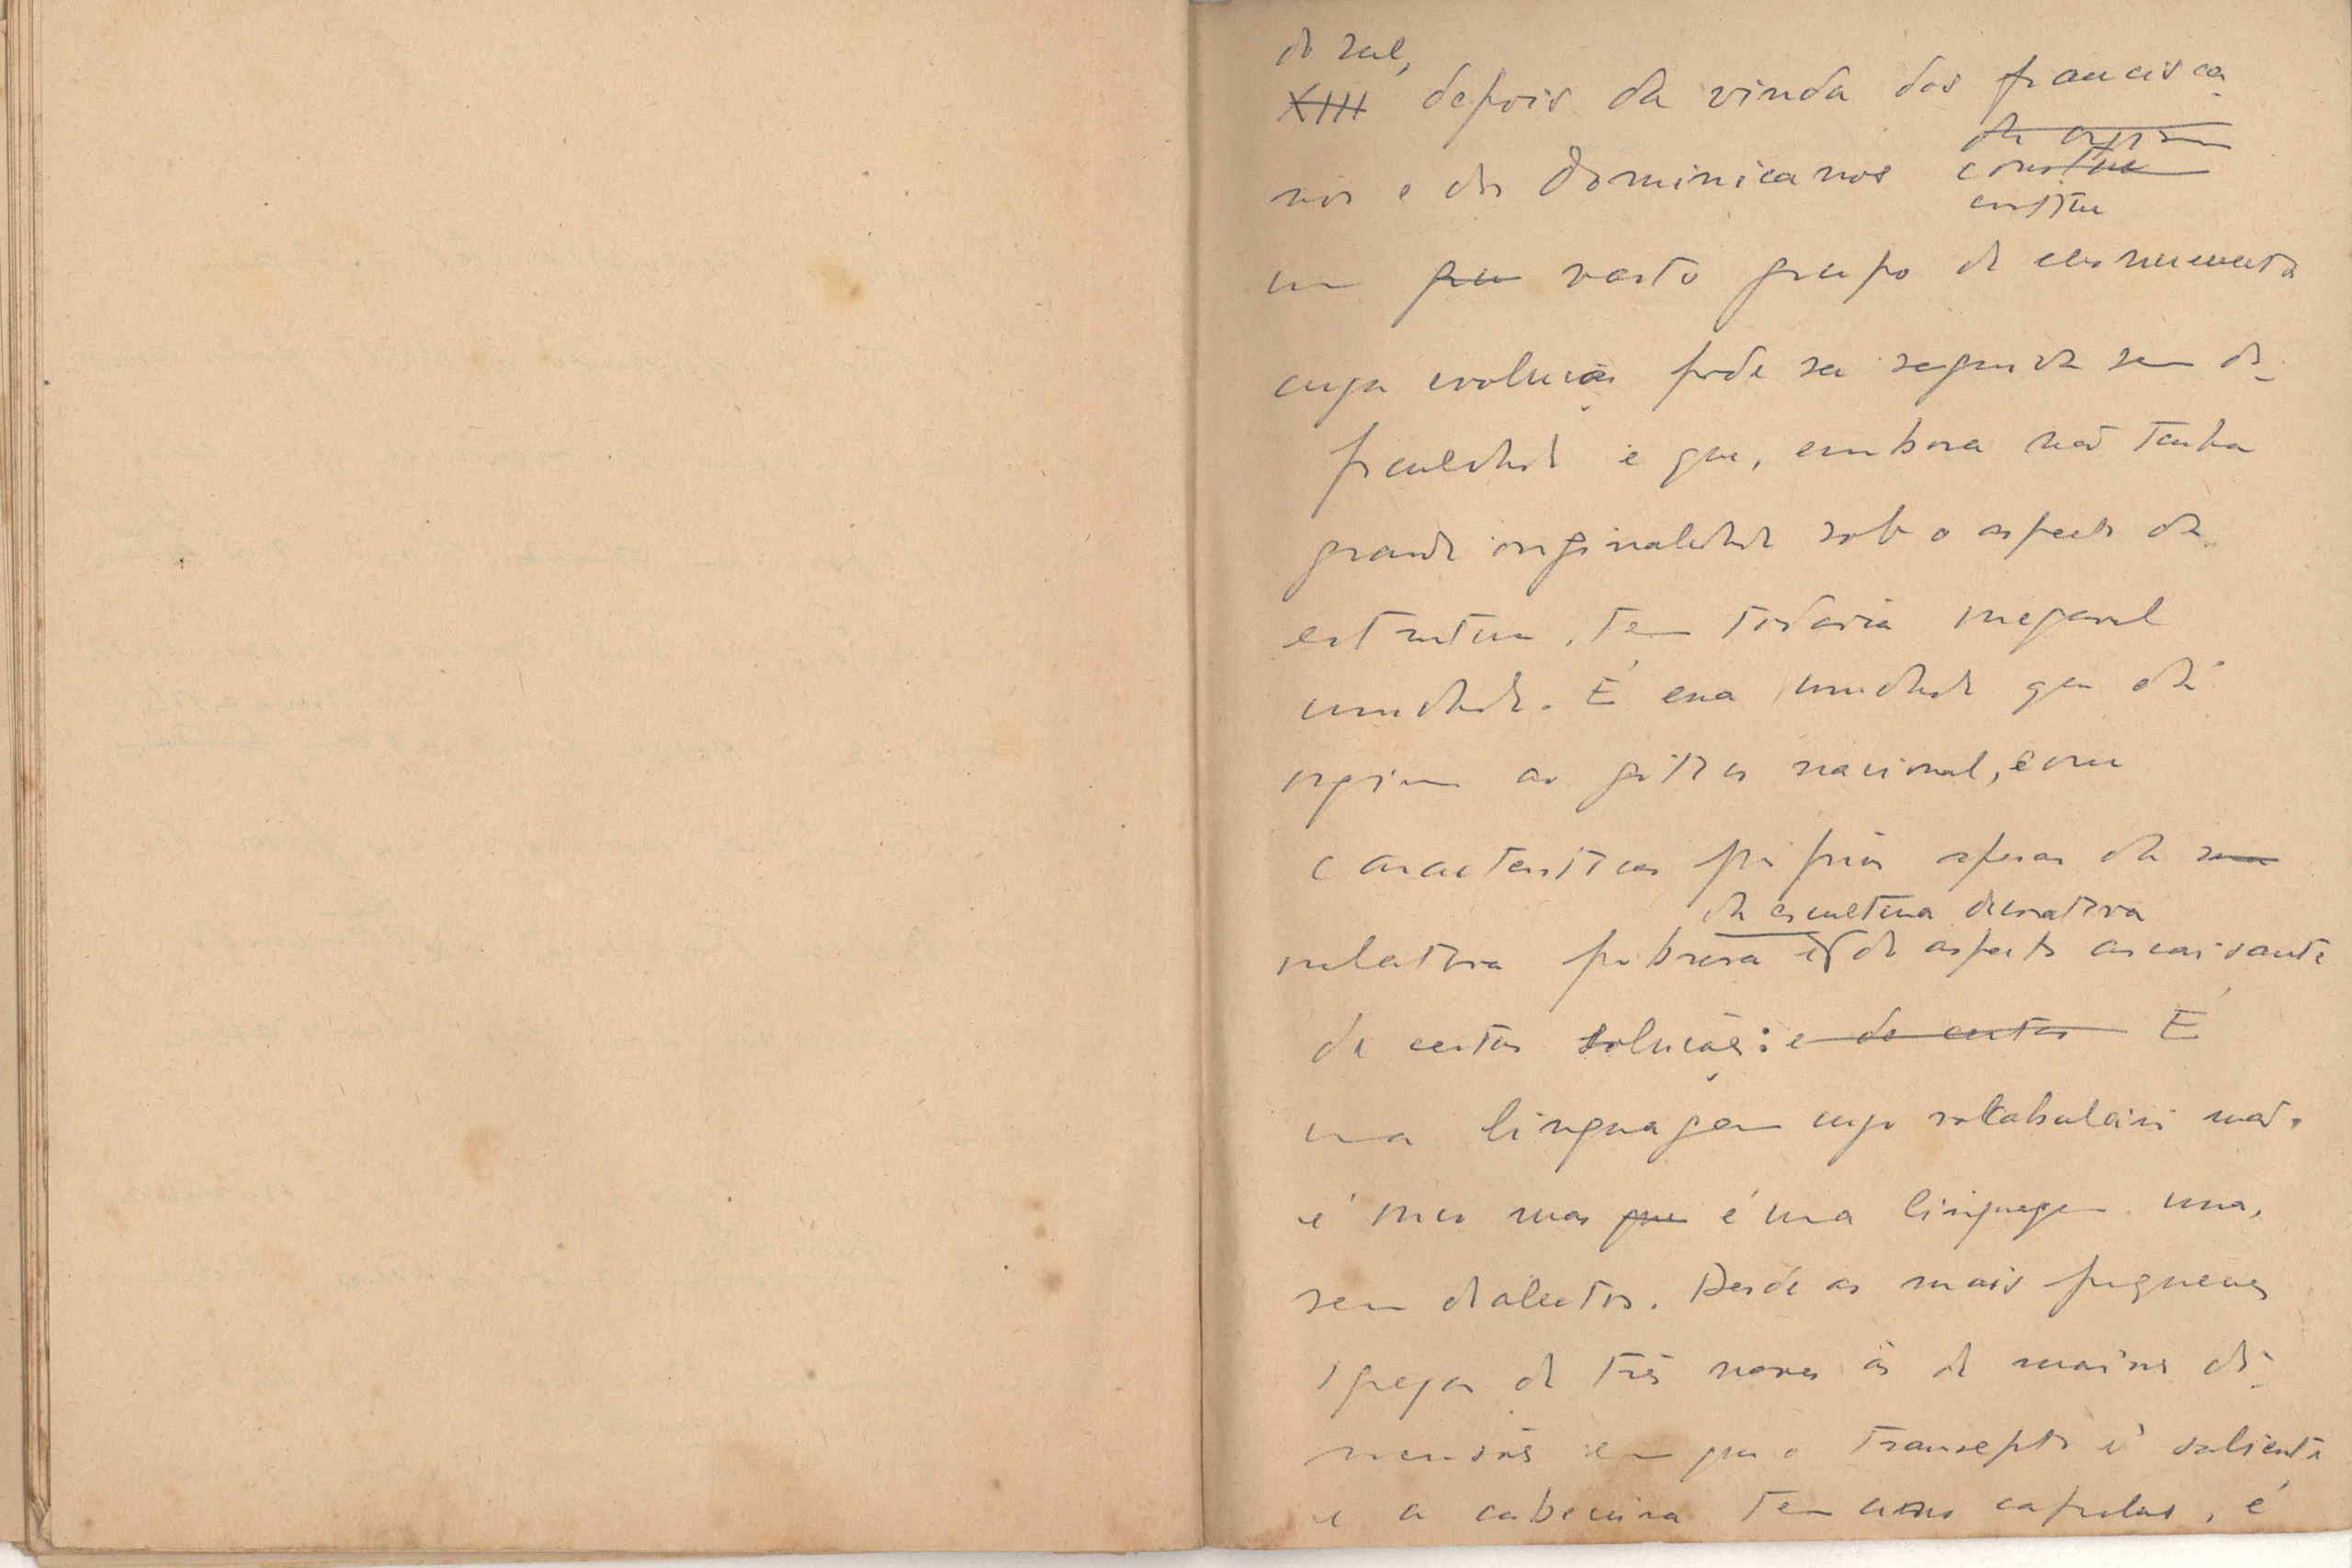 do sul,
XIII depois da vinda dos francisca-
nos e dos Dominicanos constitue
constitue
um gru vasto grupo de monumentos
cuja evolução pode ser seguida sem di-
ficuldade e que, embora não tenha
grande originalidade sob o aspecto da
estrutura, tem todavia inegavel
unidade. É essa unidade que dá
origem ao gótico nacional, com
caracteristicas próprias apesar da sua
da escultura decorativa
relativa pobreza e de aspecto arcaisante
de certas soluções: e de certas É
uma linguagem cujo vocabulário não
é rico mas que é uma linguagem una,
sem dialectos. Desde as mais pequenas
igrejas de três naves ás de maiores di-
mensões em que o transepto é saliente
e a cabeceira tem capelas, é